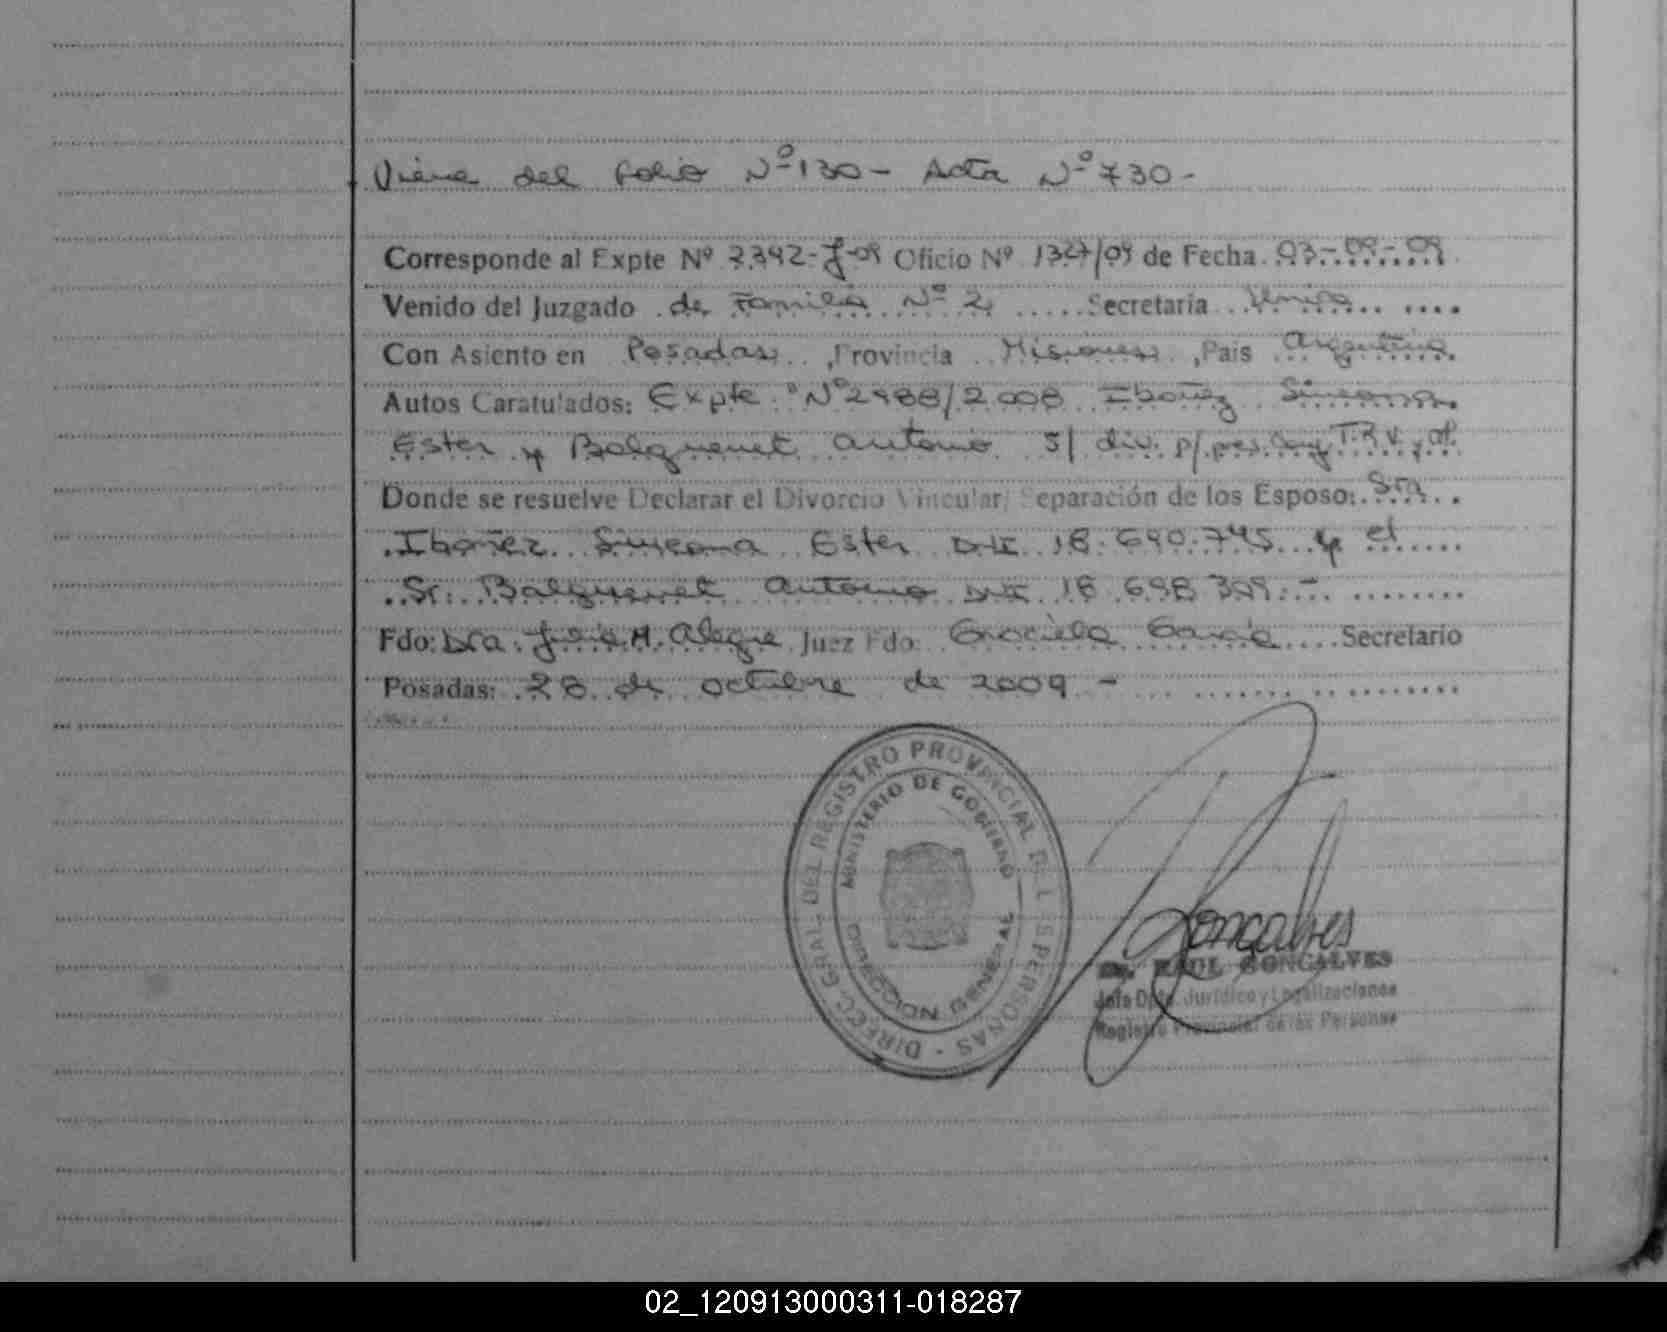 Viene del folio Nº 130 - Acta Nº 730 -
Corresponde al Expte Nº 2392-J-09 Oficio Nº 1327/09 de Fecha 03-09-09
Venido del Juzgado de Familia Nº 2 Secretaría Unica
Con Asiento en Posadas, Provincia Misiones, País Argentina
Autos Caratulados: Expte Nº 2988/2.008 Ibañez Simeona
Ester y Balquenet Antonio S/ div. p/ pres.
Donde se resuelve Declarar el Divorcio Vincular/ Separación de los Esposo: Sra
Ibañez Simeona Ester DNI 18.640.745 y el
Sr. Balquenet Antonio DNI 18.698.
Fdo: Dra. Julia M. Alegre Juez Fdo: Graciela García Secretario
Posadas: 28 de octubre de 2009 -
DIRECC. GRAL. DEL REGISTRO PROVINCIAL DE LAS PERSONAS
MINISTERIO DE GOBIERNO
DIRECCION GENERAL
Gonçalves
Dr. RAUL GONCALVES
Jefe Dpto. Jurídico y Legalizaciones
Registro Provincial de las Personas
02_120913000311-018287